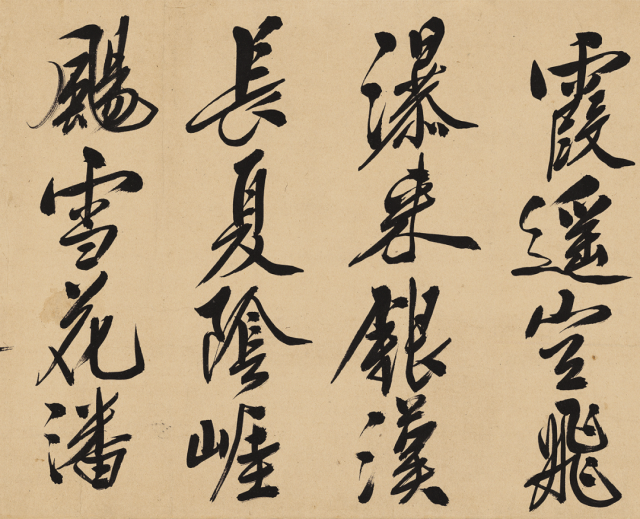 霞遥豈飛
瀑来銀漢
長夏陰崕
颺雪花潘